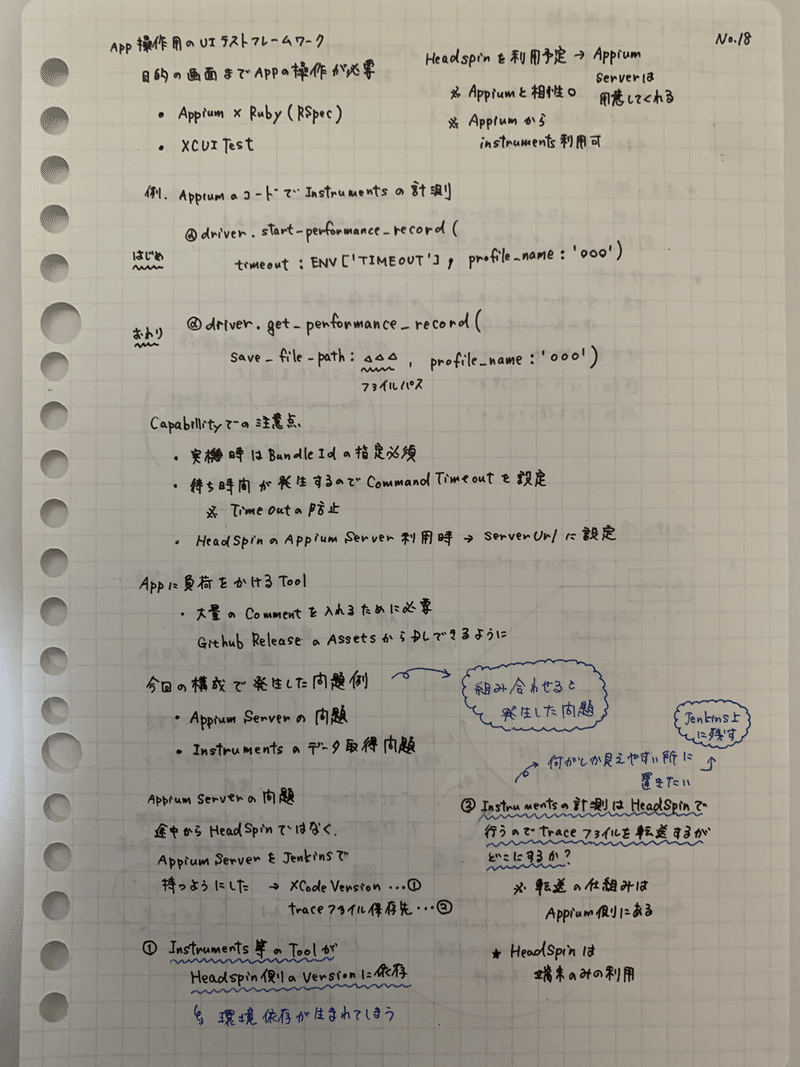 No.18
App 操作用のUIテストフレームワーク
目的の画面までAPPの操作が必要
• Appium × Ruby (RSpec)
• XCUITest
Headspinを利用予定 → Appium
Serverは
用意してくれる
※ Appiumと相性○
※ Appiumから
instruments利用可
例. AppiumのコードでInstrumentsの計測
はじめ
@driver.start-performance_record(
timeout : ENV['TIMEOUT'], profile_name : '○○○')
おわり
@driver.get_performance_record(
save_file-path: △△△, profile_name : '○○○')
ファイルパス
Capabillityでの注意点.
• 実機時はBundle Idの指定必須
• 待ち時間が発生するのでCommand Timeoutを設定
※ Time Outの防止
• HeadSpinのAppium Server利用時 → ServerUrlに設定
Appに負荷をかけるTool
• 大量のCommentを入れるために必要
Github ReleaseのAssetsからDLできるように
今回の構成で発生した問題例
組み合わせると
発生した問題
• Appium Serverの問題
• Instrumentsのデータ取得問題
Jenkins上
に残す
何かしか見えやすい所に
置きたい
Appium Serverの問題
途中からHeadSpinではなく、
Appium ServerをJenkinsで
持つようにした → XCode Version …①
traceファイル保存先 …②
① Instruments等のToolが
Headspin側のVersionに依存
環境依存が生まれてしまう
② Instrumentsの計測はHeadSpinで
行うのでtraceファイルを転送するが
どこにするか?
※ 転送の仕組みは
Appium側にある
★ HeadSpinは
端末のみの利用